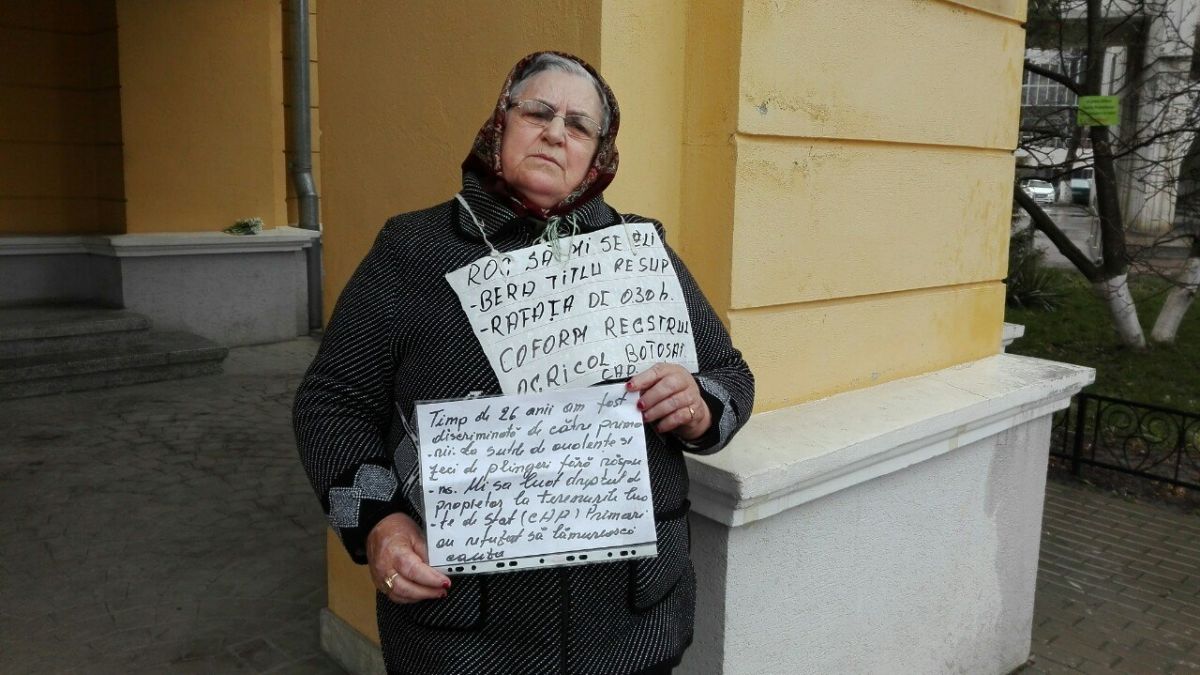 ROG SĂ MI SE ELI
-BERD TITLU RE SUP
-RAFAȚA DE 0.30 h.
COFORM REGSTRUL
AGRICOL BOTOȘAI
CAP
Timp de 26 anii am fost
discriminată de către prima
-rii. La sute de audențe și
zeci de plîngeri fără răspu
-ns. Mi sa luat dreptul de
propietar la terenurile lua
-te de stat (CAP) Primari
au refuzat să lămurească